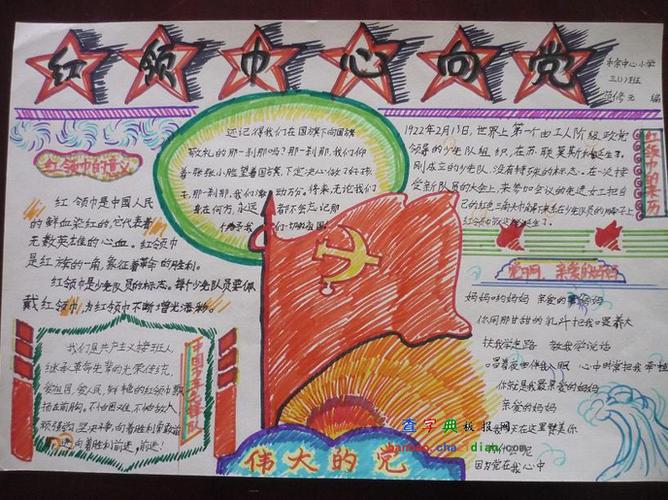 红领巾心向党
中心小学
三(1)班
编
红领巾的意义
红领巾是中国人民
的鲜血染红的,它代表着
无数英雄的心血。红领巾
是红旗的一角,象征着革命的胜利。
红领巾是少先队员的标志。每个少先队员里佩
戴红领巾,为红领巾不断增光添彩。
还记得我们在国旗下向国旗
敬礼的那一刹那吗?那一刹那,我们仰
着张张小脸望着国旗下,决定一心做了好孩
那一刹那,我们
动万分。将来无论我们
身在何方,永远
都不会忘记那
1922年2月13日,世界上第一个由工人阶级政党
领导的少先队组织,在苏联莫斯科诞生了。
刚成立的少先队,没有特殊的标志。在一次接
受新队员的大会上,来参加会议的先进女工把自
己的红色三角头巾解下来系在少先队员的脖子上
红领巾
诞生了。
红领巾的来历
党啊,亲爱的妈妈
妈妈哟妈妈 亲爱的妈妈
你用那甘甜的乳汁把我喂养大
扶我学走路 教我学说话
唱着夜曲伴我入眠 心中时常把我牵挂
你就是我最亲爱的妈妈
亲爱的妈妈
在这里赞美你
因为党在我心中
我们是共产主义接班人
继承革命先辈的光荣传统,
爱祖国,爱人民,鲜艳的红领巾飘
扬在前胸。不怕困难,不怕敌人
顽强学习,坚决斗争,向着胜利勇敢前
进,向着胜利前进,前进!
中国少年先锋队
伟大的党
查字典板报网
banbao.chazidian.com